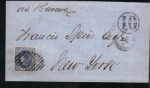 via Havana
Francis Spies Esq
New York